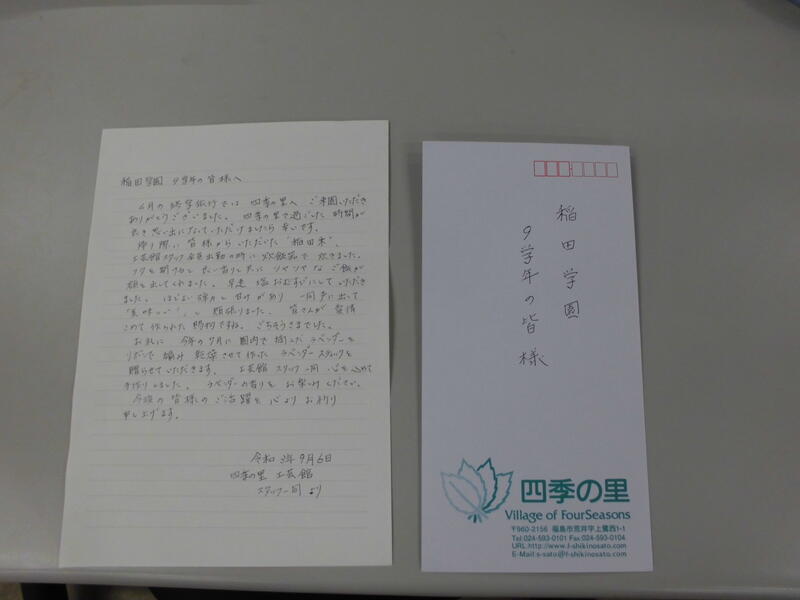 稲田学園 9学年の皆様へ
6月の修学旅行では 四季の里へ ご来園いただき
ありがとうございました。 四季の里で過ごした時間が
良き思い出になっていただけましたら幸いです。
帰り際に 皆様からいただいた "稲田米"、
工芸館スタッフ全員出勤の時に 炊飯器で 炊きました。
フタを開けると 良い香りと共に ツヤツヤな ご飯が
顔を出してくれました。 早速 塩おむすびにしていただき
ました。 ほどよい弾力と 甘みがあり 一同声に出して
「美味しい!」と 頬張りました。 皆さんが 愛情
こめて 作られた 賜物ですね。 ごちそうさまでした。
お礼に 今年の7月に 園内で 摘んだ ラベンダーを
リボンで 編み 乾燥させて作った ラベンダースティックを
贈らせていただきます。 工芸館 スタッフ一同 心を込めて
手作りしました。 ラベンダーの香りを お楽しみください。
今後の 皆様の ご活躍を 心より お祈り
申し上げます。
令和3年9月6日
四季の里 工芸館
スタッフ一同 より
稲田学園
9学年の皆様
四季の里
Village of FourSeasons
〒960-2156 福島市荒井字上鷺西1-1
Tel:024-593-0101 Fax:024-593-0104
URL:http://www.f-shikinosato.com
E-Mail:s-sato@f-shikinosato.com